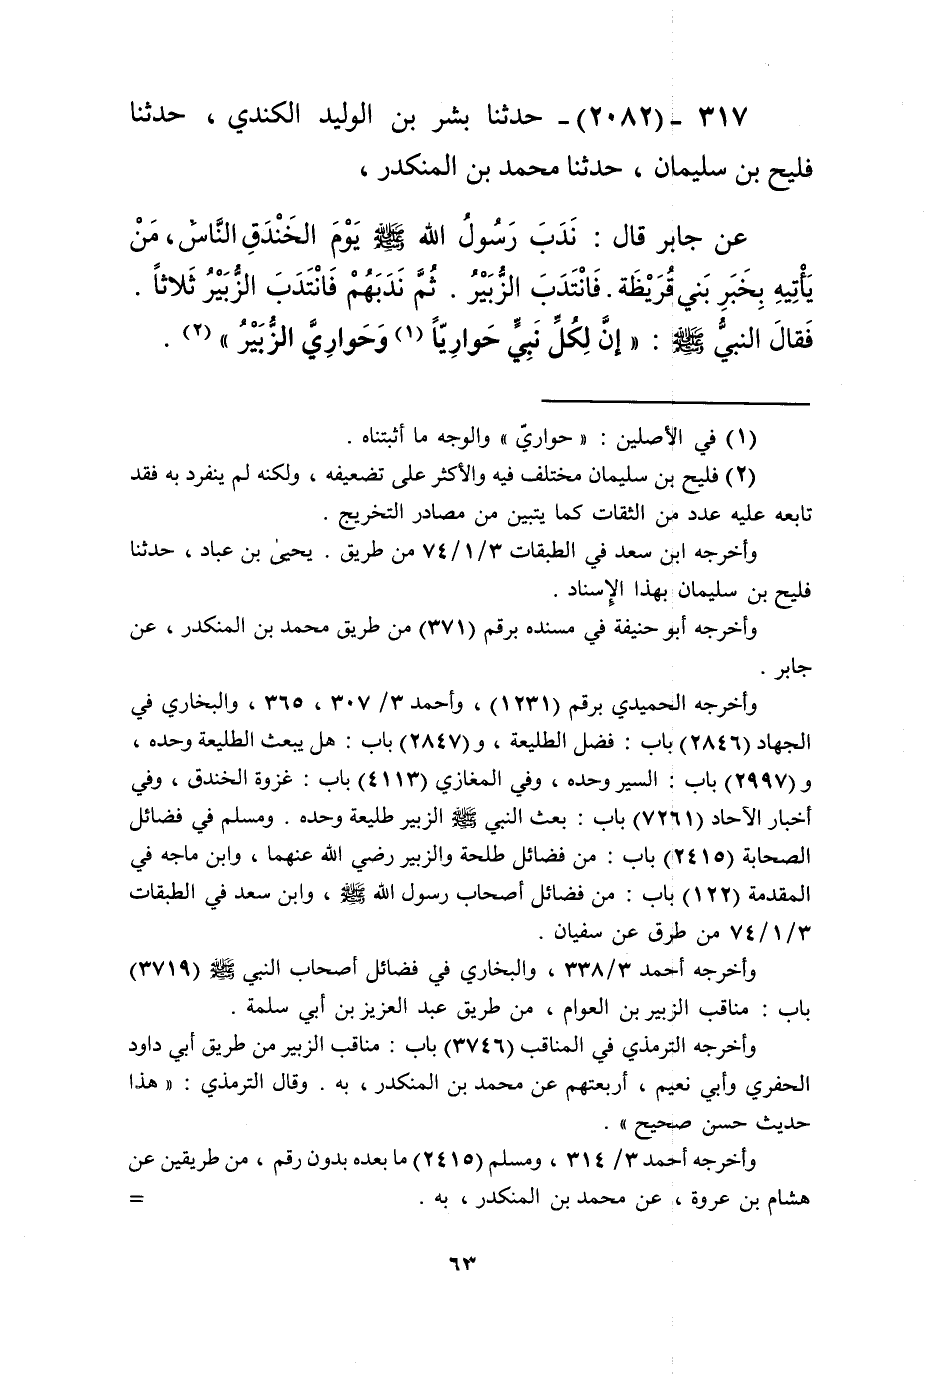 ٣١٧ - (٢٠٨٢) - حدثنا بشر بن الوليد الكندي ، حدثنا
فليح بن سليمان ، حدثنا محمد بن المنكدر ،
عن جابر قال : نَدَبَ رَسُولُ الله ﷺ يَوْمَ الخَنْدَقِ النَّاسَ، مَنْ
يَأْتِيهِ بِخَبَرِ بَني قُرَيْظَة . فَانْتَدَبَ الزُّبَيْرُ . ثُمَّ نَدَبَهُمْ فَانْتَدَبَ الزُّبَيْرُ ثَلاثاً .
فَقالَ النبيُّ ﷺ : « إنَّ لِكُلِّ نَبِيٍّ حَوارِيّاً (١) وَحَوارِيَّ الزُّبَيْرُ » (٢) .
(١) في الأصلين : « حواريّ » والوجه ما أثبتناه .
(٢) فليح بن سليمان مختلف فيه والأكثر على تضعيفه ، ولكنه لم ينفرد به فقد
تابعه عليه عدد من الثقات كما يتبين من مصادر التخريج .
وأخرجه ابن سعد في الطبقات ٧٤/١/٣ من طريق . يحيىٰ بن عباد ، حدثنا
فليح بن سليمان بهذا الإسناد .
وأخرجه أبو حنيفة في مسنده برقم (٣٧١) من طريق محمد بن المنكدر ، عن
جابر .
وأخرجه الحميدي برقم (١٢٣١) ، وأحمد ٣/ ٣٠٧ ، ٣٦٥ ، والبخاري في
الجهاد (٢٨٤٦) باب : فضل الطليعة ، و (٢٨٤٧) باب : هل يبعث الطليعة وحده ،
و (٢٩٩٧) باب : السير وحده ، وفي المغازي (٤١١٣) باب : غزوة الخندق ، وفي
أخبار الآحاد (٧٢٦١) باب : بعث النبي ﷺ الزبير طليعة وحده . ومسلم في فضائل
الصحابة (٢٤١٥) باب : من فضائل طلحة والزبير رضي الله عنهما ، وابن ماجه في
المقدمة (١٢٢) باب : من فضائل أصحاب رسول الله ﷺ ، وابن سعد في الطبقات
٧٤/١/٣ من طرق عن سفيان .
وأخرجه أحمد ٣٣٨/٣ ، والبخاري في فضائل أصحاب النبي ﷺ (٣٧١٩)
باب : مناقب الزبير بن العوام ، من طريق عبد العزيز بن أبي سلمة .
وأخرجه الترمذي في المناقب (٣٧٤٦) باب : مناقب الزبير من طريق أبي داود
الحفري وأبي نعيم ، أربعتهم عن محمد بن المنكدر ، به . وقال الترمذي : « هذا
حديث حسن صحيح » .
وأخرجه أحمد ٣/ ٣١٤ ، ومسلم (٢٤١٥) ما بعده بدون رقم ، من طريقين عن
هشام بن عروة ، عن محمد بن المنكدر ، به . =
٦٣